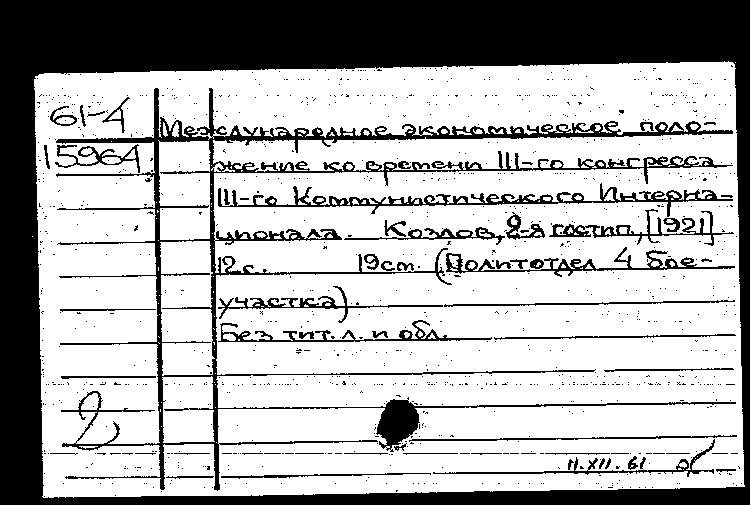 61-4
15964
Международное экономическое поло-
жение ко времени III-го конгресса
III-го Коммунистического Интерна-
ционала. Козлов, 2-я гостип., [1921].
12с. 19см. (Политотдел 4 бое-
участка).
Без тит.л. и обл.
2
11.XII.61